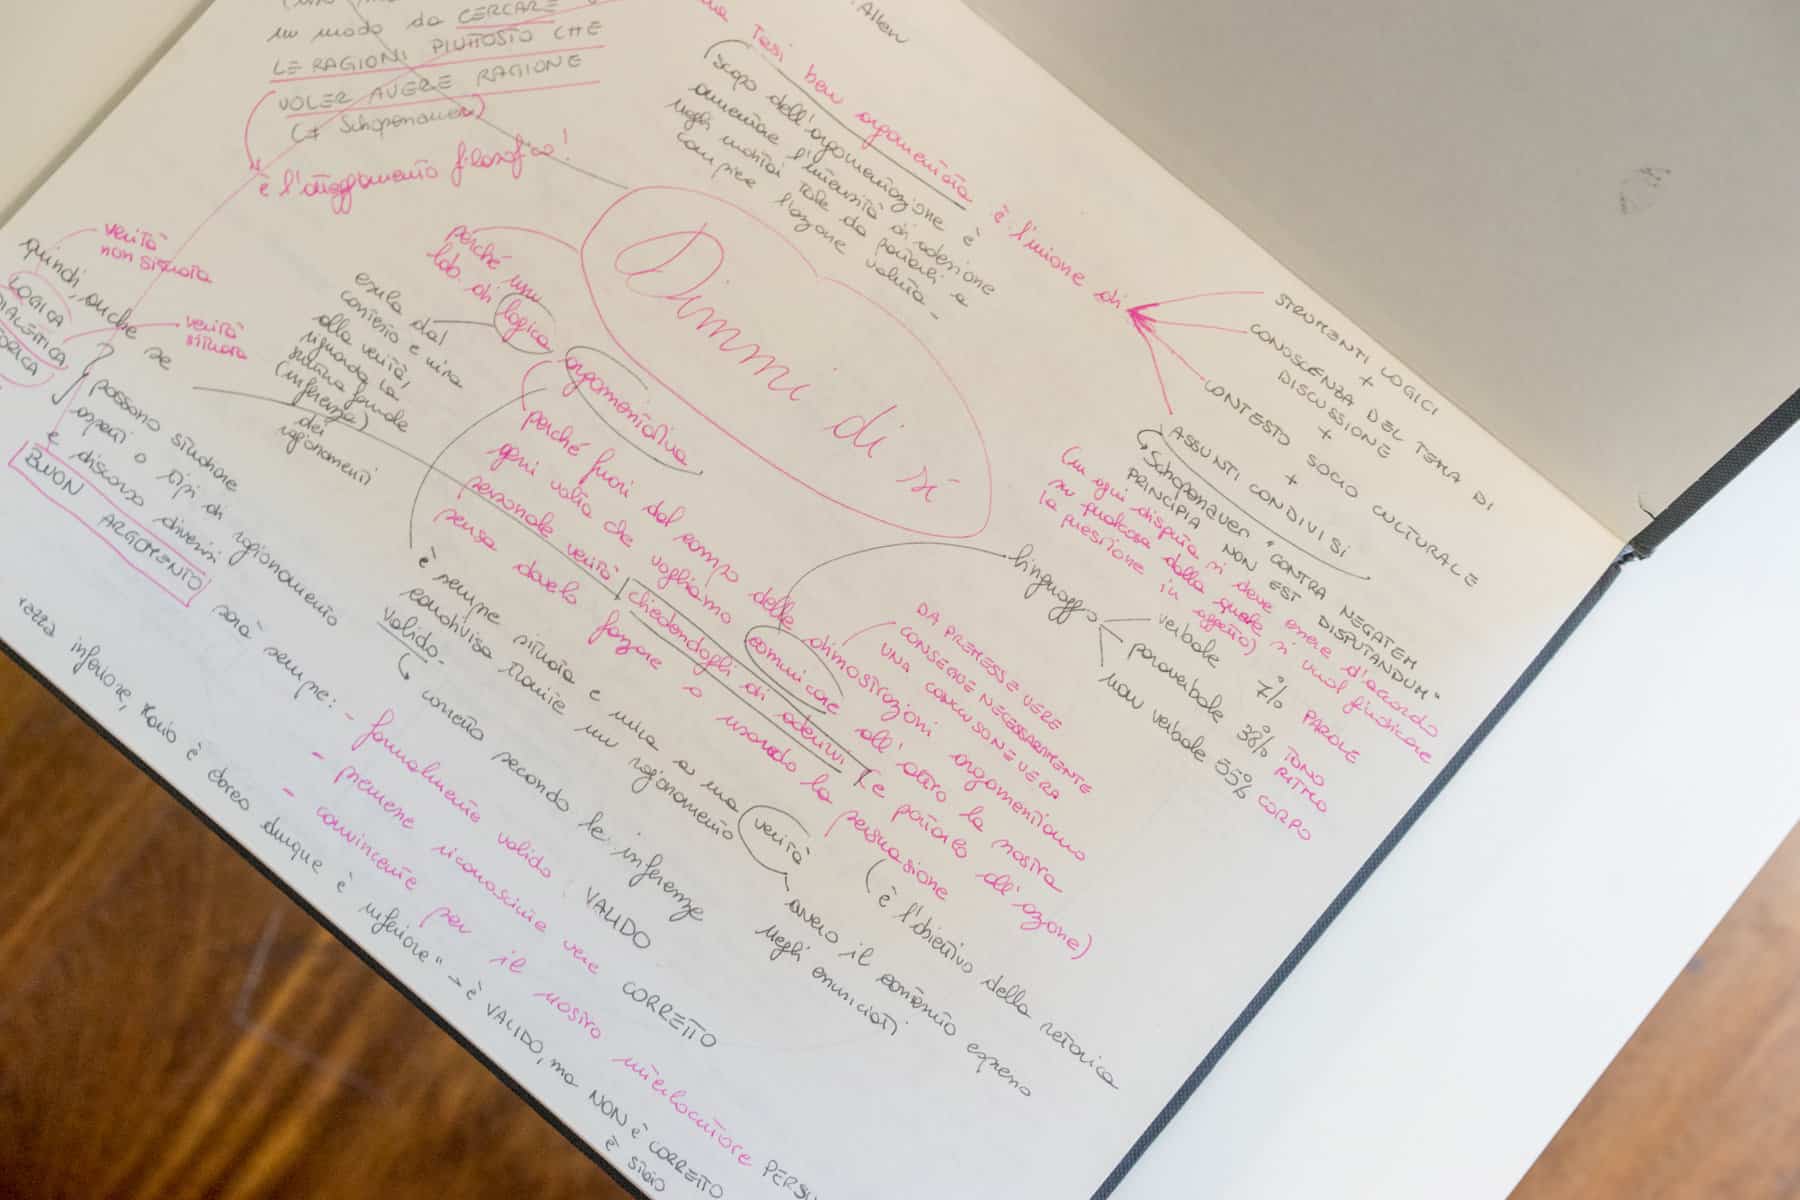 un modo da CERCARE
LE RAGIONI PIUTTOSTO CHE
VOLER AVERE RAGIONE
(≠ Schopenauer)
è l'atteggiamento filosofico!
Allen
Tesi ben argomentata è l'unione di
(scopo dell'argomentazione è
aumentare l'intensità di adesione
negli uditori tale da portarli a
compiere l'azione voluta
STRUMENTI LOGICI
+
CONOSCENZA DEL TEMA DI
DISCUSSIONE
+
CONTESTO SOCIO CULTURALE
+
ASSUNTI CONDIVISI
Schopenauer "CONTRA NEGATEM
PRINCIPIA NON EST DISPUTANDUM"
(in ogni disputa si deve essere d'accordo
su qualcosa dalla quale si vuol giudicare
la questione in oggetto)
Dimmi di sì
perché un
lab. di logica
argomentativa
esula dal
contesto e mira
alla verità,
riguarda la
forma
(inferenze)
dei
ragionamenti
verità
non situata
verità
situata
quindi, anche se
LOGICA
DIALETTICA
possono studiare
aspetti o tipi di ragionamento
e discorso diversi
BUON ARGOMENTO sarà sempre:
- formalmente valido : VALIDO
- premesse riconosciute vere CORRETTO
- convincente per il nostro interlocutore
perché fuori dal campo delle dimostrazioni argomentiamo
ogni volta che vogliamo comunicare all'altro la nostra
personale verità chiedendogli di aderirvi (e portarlo all'azione)
senza doverlo forzare o usando la persuasione
(è l'obiettivo della retorica
DA PREMESSE VERE
CONSEGUE NECESSARIAMENTE
UNA CONCLUSIONE VERA
linguaggio
verbale 7% PAROLE
paraverbale 38% TONO
RITMO
non verbale 55% CORPO
è sempre situata e mira a una verità
condivisa tramite un ragionamento
valido.
corretto secondo le inferenze
ovvero il contenuto espresso
negli enunciati
razza inferiore, Mario è
dunque è inferiore" → è VALIDO, ma NON è CORRETTO